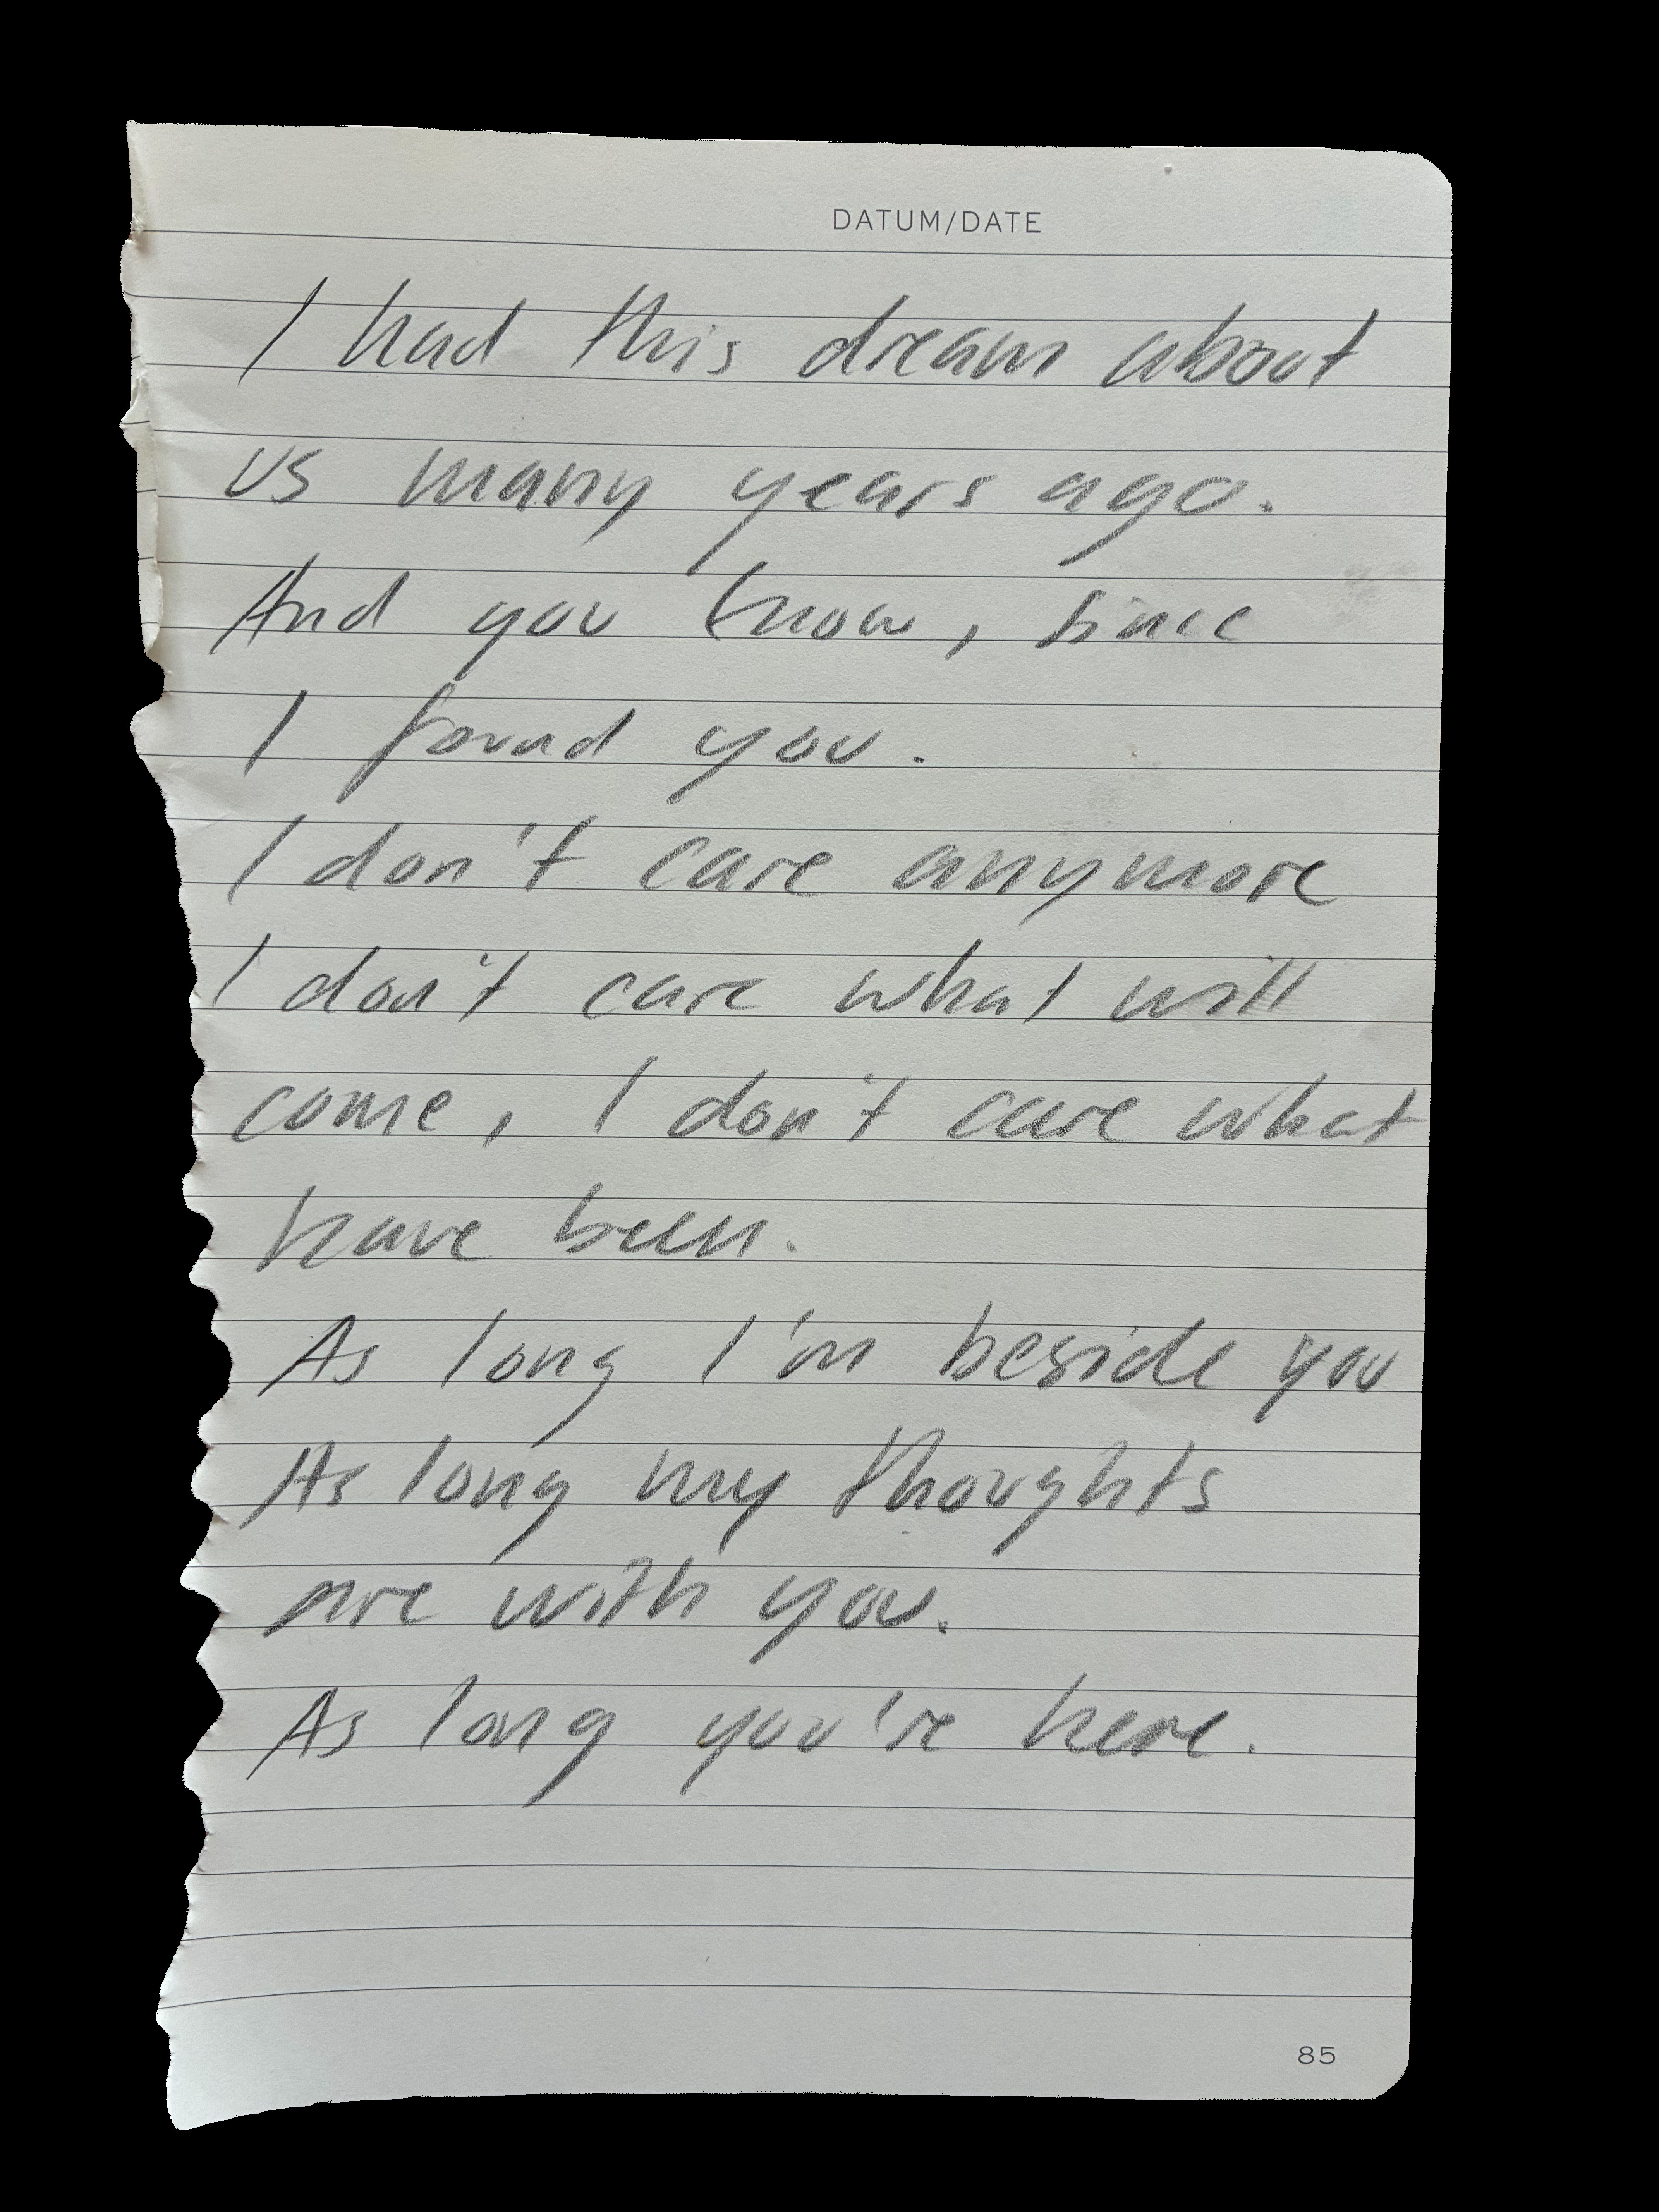 DATUM/DATE
I had this dream about
us many years ago.
And you know, since
I found you.
I don't care anymore
I don't care what will
come, I don't care what
have been.
As long I'm beside you
As long my thoughts
are with you.
As long you're here.
85